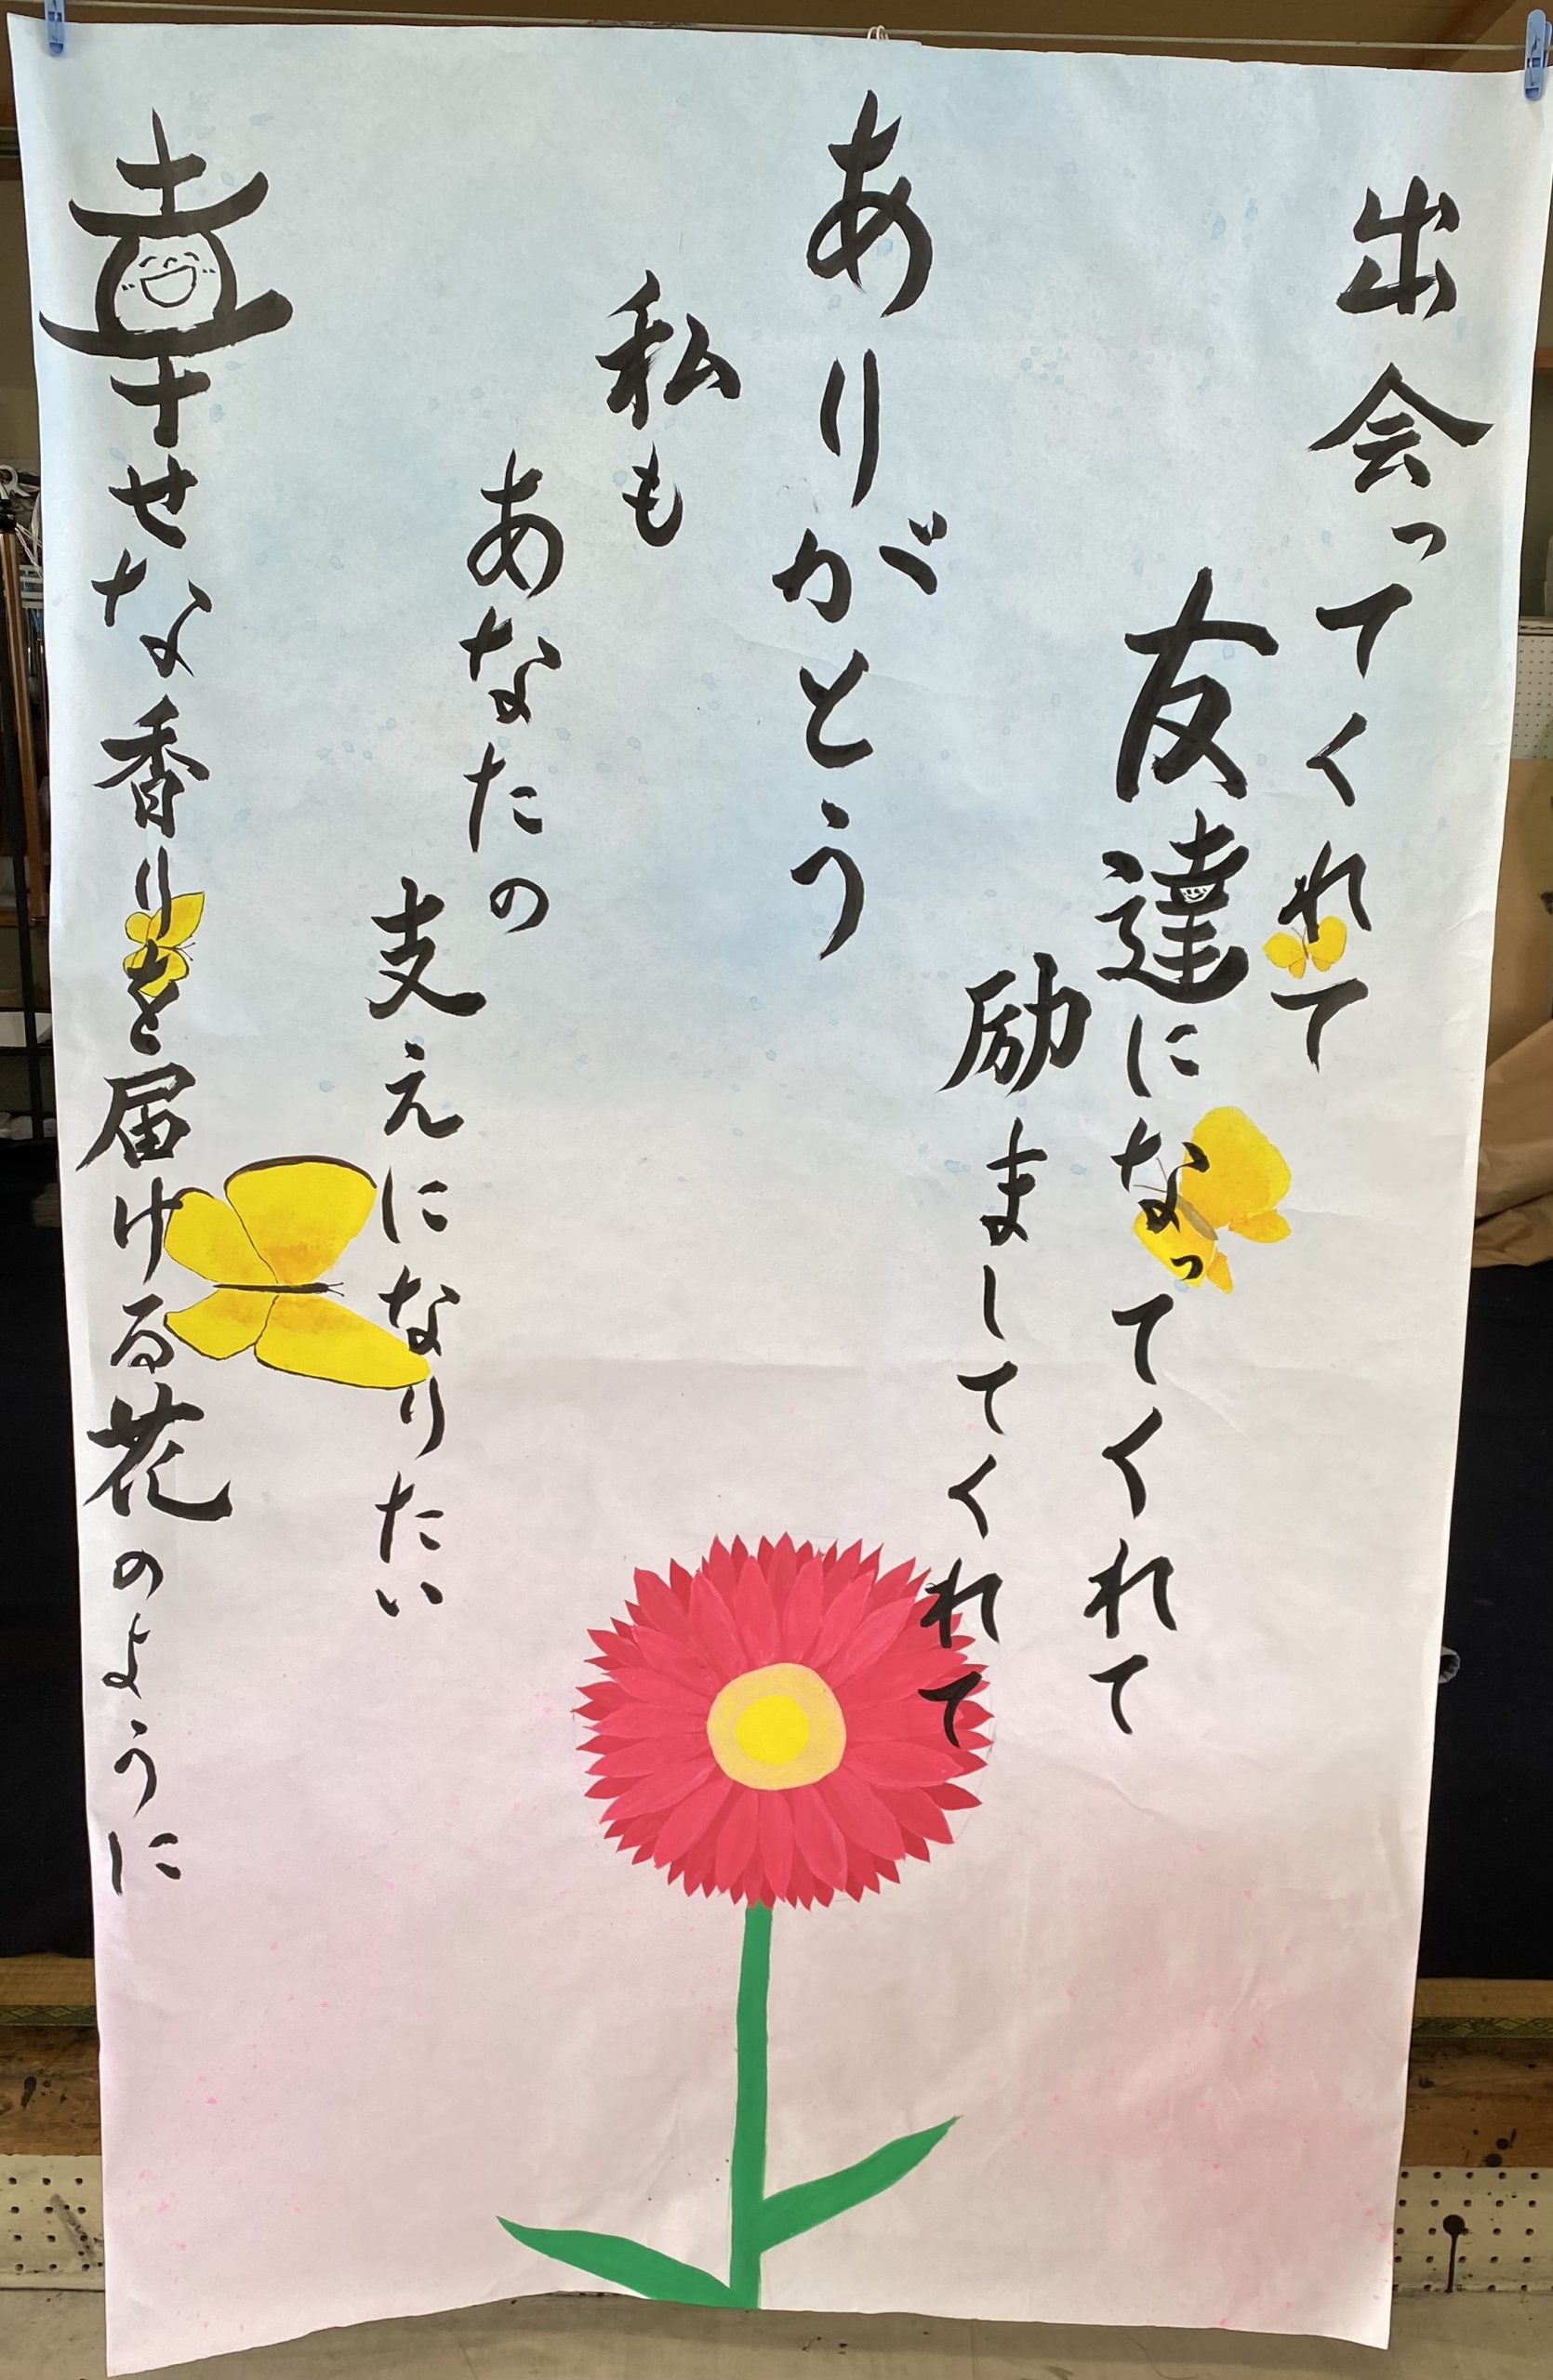 出会ってくれて
友達になってくれて
励ましてくれて
ありがとう
私も
あなたの
支えになりたい
幸せな香りを届ける花のように